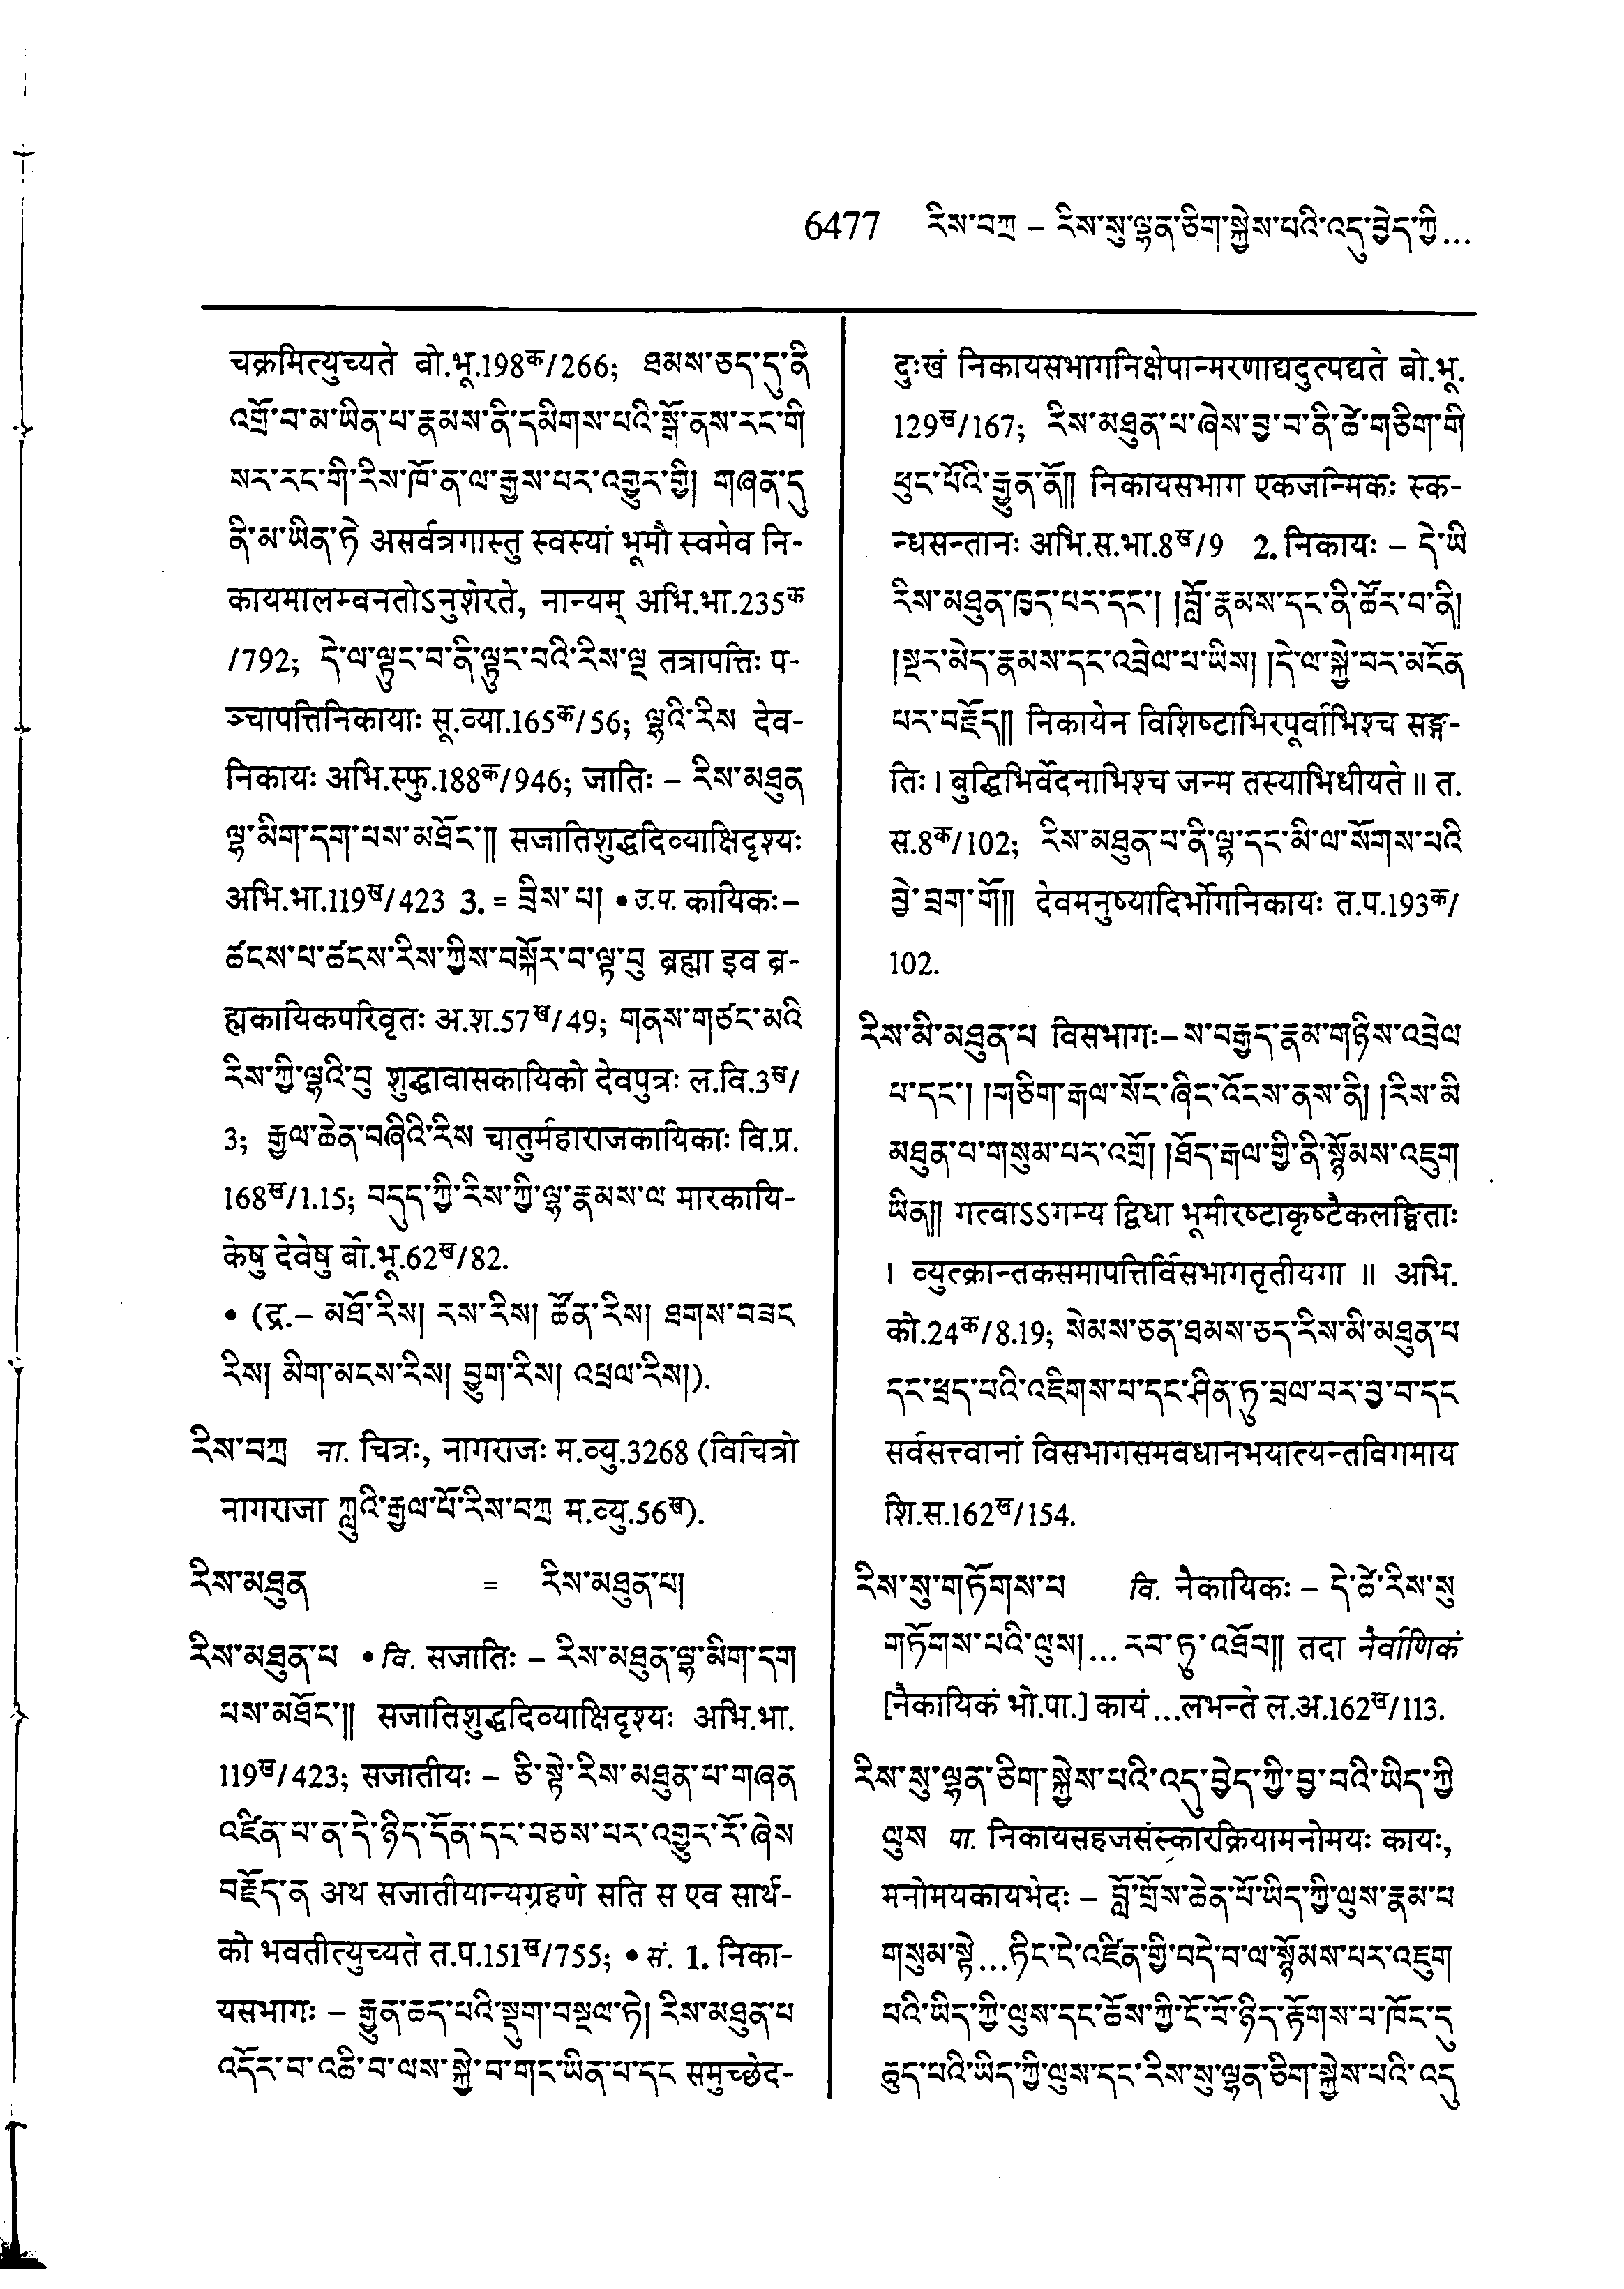 6477 རིས་བཀྲ – རིས་སུ་ལྷན་ཅིག་སྐྱེས་པའི་འདུ་བྱེད་ཀྱི...
चक्रमित्युच्यते बो.भू.198क/266; ཐམས་ཅད་དུ་ནི
འགྲོ་བ་མ་ཡིན་པ་རྣམས་ནི་དམིགས་པའི་སྒོ་ནས་རང་གི
སར་རང་གི་རིས་ཁོ་ན་ལ་རྒྱས་པར་འགྱུར་གྱི། གཞན་དུ
ནི་མ་ཡིན་ཏེ असर्वत्रगास्तु स्वस्यां भूमौ स्वमेव नि-
कायमालम्बनतोऽनुशेरते, नान्यम् अभि.भा.235क
/792; དེ་ལ་ལྟུང་བ་ནི་ལྟུང་བའི་རིས་ལྔ तत्रापत्तिः प-
ञ्चापत्तिनिकायाः सू.व्या.165क/56; ལྷའི་རིས देव-
निकायः अभि.स्फु.188क/946; जातिः – རིས་མཐུན
ལྷ་མིག་དག་པས་མཐོང་༎ सजातिशुद्धदिव्याक्षिदृश्यः
अभि.भा.119ख/423 3. = བྲིས་པ། • उ.प. कायिकः–
ཚངས་པ་ཚངས་རིས་ཀྱིས་བསྐོར་བ་ལྟ་བུ ब्रह्मा इव ब्र-
ह्मकायिकपरिवृतः अ.श.57ख/49; གནས་གཙང་མའི
རིས་ཀྱི་ལྷའི་བུ शुद्धावासकायिको देवपुत्रः ल.वि.3ख/
3; རྒྱལ་ཆེན་བཞིའི་རིས चातुर्महाराजकायिकाः वि.प्र.
168ख/1.15; བདུད་ཀྱི་རིས་ཀྱི་ལྷ་རྣམས་ལ मारकायि-
केषु देवेषु बो.भू.62ख/82.
• (द्र.– མཐོ་རིས། རས་རིས། ཚོན་རིས། ཐགས་བཟང
རིས། མིག་མངས་རིས། བྱུག་རིས། འཕྲལ་རིས།).
རིས་བཀྲ ना. चित्रः, नागराजः म.व्यु.3268 (विचित्रो
नागराजा ཀླུའི་རྒྱལ་པོ་རིས་བཀྲ म.व्यु.56ख).
རིས་མཐུན = རིས་མཐུན་པ།
རིས་མཐུན་པ • वि. सजातिः – རིས་མཐུན་ལྷ་མིག་དག
པས་མཐོང་༎ सजातिशुद्धदिव्याक्षिदृश्यः अभि.भा.
119ख/423; सजातीयः – ཅི་སྟེ་རིས་མཐུན་པ་གཞན
འཛིན་པ་ན་དེ་ཉིད་དོན་དང་བཅས་པར་འགྱུར་རོ་ཞེས
བརྗོད་ན अथ सजातीयान्यग्रहणे सति स एव सार्थ-
को भवतीत्युच्यते त.प.151ख/755; • सं. 1. निका-
यसभागः – རྒྱུན་ཆད་པའི་སྡུག་བསྔལ་ཏེ། རིས་མཐུན་པ
འདོར་བ་འཆི་བ་ལས་སྐྱེ་བ་གང་ཡིན་པ་དང समुच्छेद-
दुःखं निकायसभागनिक्षेपान्मरणाद्यदुत्पद्यते बो.भू.
129ख/167; རིས་མཐུན་པ་ཞེས་བྱ་བ་ནི་ཚེ་གཅིག་གི
ཕུང་པོའི་རྒྱུན་ནོ༎ निकायसभाग एकजन्मिकः स्क-
न्धसन्तानः अभि.स.भा.8ख/9 2. निकायः – དེ་ཡི
རིས་མཐུན་ཁྱད་པར་དང་། །བློ་རྣམས་དང་ནི་ཚོར་བ་ནི།
།སྔར་མེད་རྣམས་དང་འབྲེལ་པ་ཡིས། །དེ་ལ་སྐྱེ་བར་མངོན
པར་བརྗོད༎ निकायेन विशिष्टाभिरपूर्वाभिश्च सङ्ग-
तिः। बुद्धिभिर्वेदनाभिश्च जन्म तस्याभिधीयते॥ त.
स.8क/102; རིས་མཐུན་པ་ནི་ལྷ་དང་མི་ལ་སོགས་པའི
བྱེ་བྲག་གོ༎ देवमनुष्यादिर्भोगनिकायः त.प.193क/
102.
རིས་མི་མཐུན་པ विसभागः– ས་བརྒྱད་རྣམ་གཉིས་འབྲེལ
པ་དང་། །གཅིག་རྒལ་སོང་ཞིང་འོངས་ནས་ནི། །རིས་མི
མཐུན་པ་གསུམ་པར་འགྲོ། །ཐོད་རྒལ་གྱི་ནི་སྙོམས་འཇུག
ཡིན༎ गत्वाऽऽगम्य द्विधा भूमीरष्टाकृष्टैकलङ्घिताः
। व्युत्क्रान्तकसमापत्तिर्विसभागतृतीयगा ॥ अभि.
को.24क/8.19; སེམས་ཅན་ཐམས་ཅད་རིས་མི་མཐུན་པ
དང་ཕྲད་པའི་འཇིགས་པ་དང་ཤིན་ཏུ་བྲལ་བར་བྱ་བ་དང
सर्वसत्त्वानां विसभागसमवधानभयात्यन्तविगमाय
शि.स.162ख/154.
རིས་སུ་གཏོགས་པ वि. नैकायिकः – དེ་ཚེ་རིས་སུ
གཏོགས་པའི་ལུས།... རབ་ཏུ་འཐོབ༎ तदा नैर्वाणिकं
[नैकायिकं भो.पा.] कायं ...लभन्ते ल.अ.162ख/113.
རིས་སུ་ལྷན་ཅིག་སྐྱེས་པའི་འདུ་བྱེད་ཀྱི་བྱ་བའི་ཡིད་ཀྱི
ལུས पा. निकायसहजसंस्कारक्रियामनोमयः कायः,
मनोमयकायभेदः – བློ་གྲོས་ཆེན་པོ་ཡིད་ཀྱི་ལུས་རྣམ་པ
གསུམ་སྟེ...ཏིང་ངེ་འཛིན་གྱི་བདེ་བ་ལ་སྙོམས་པར་འཇུག
པའི་ཡིད་ཀྱི་ལུས་དང་ཆོས་ཀྱི་ངོ་བོ་ཉིད་རྟོགས་པ་ཁོང་དུ
ཆུད་པའི་ཡིད་ཀྱི་ལུས་དང་རིས་སུ་ལྷན་ཅིག་སྐྱེས་པའི་འདུ